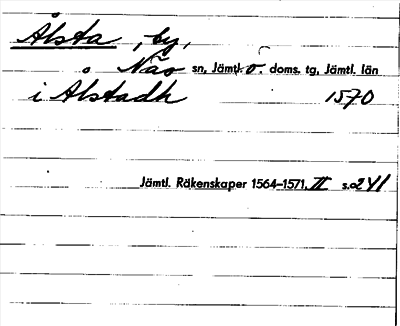 Ålsta, by,
Näs sn, Jämtl. ö. doms. tg, Jämtl. län
i Ålstadh 1570
Jämtl. Räkenskaper 1564–1571, II s. 241